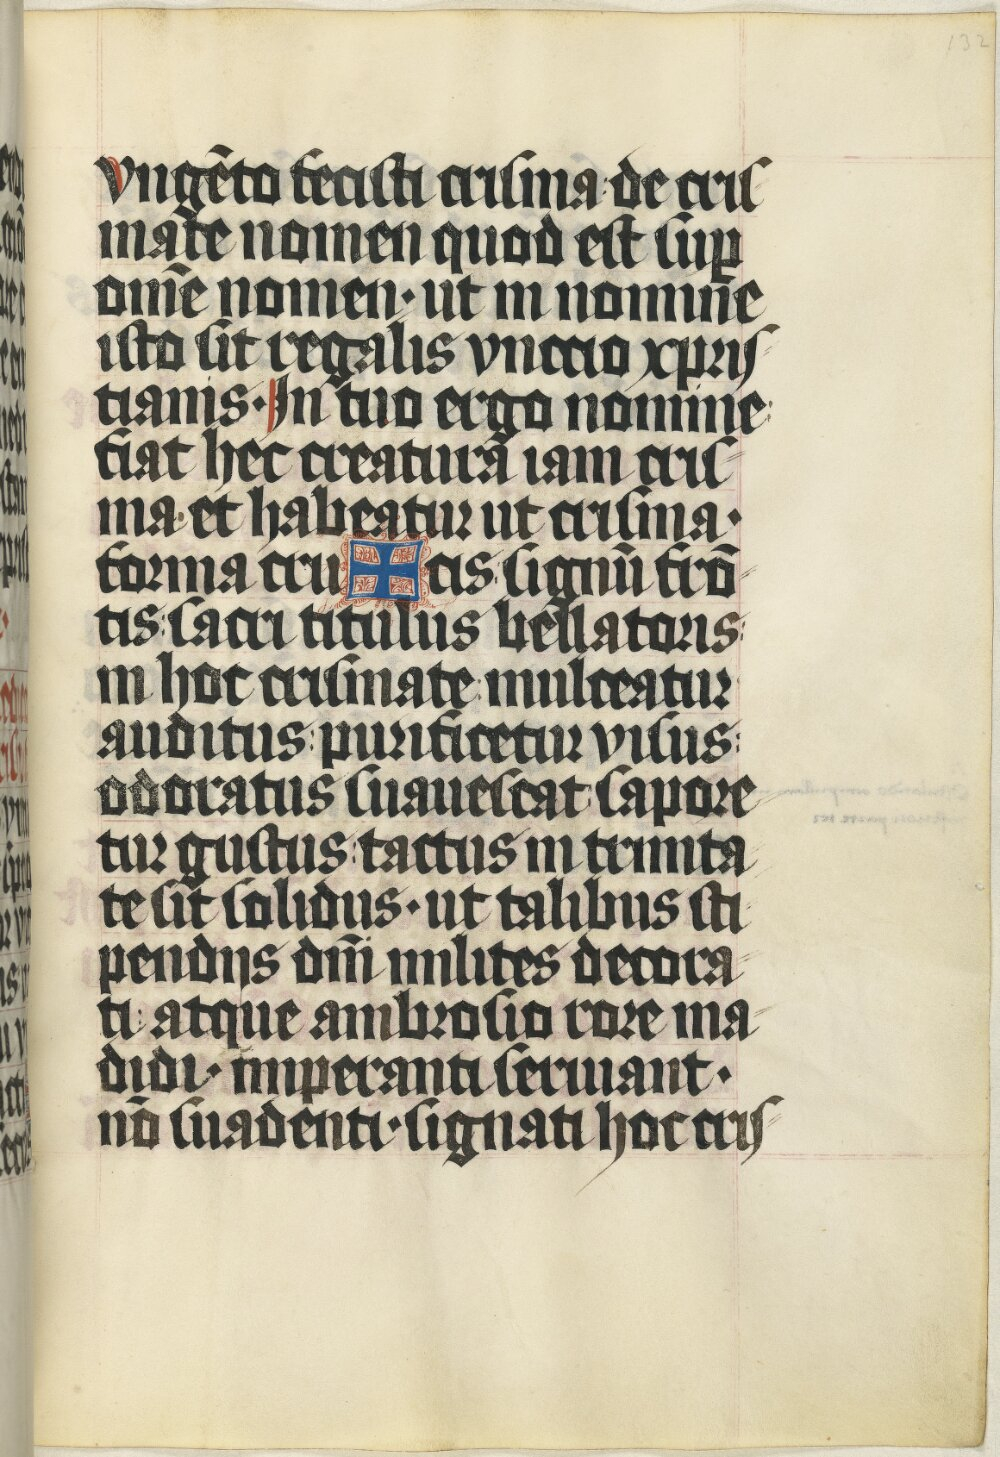 132
Vngēto fecisti crisma de cris
mate nomen quod est sup
om̄e nomen· ut in nomine
isto sit regalis vnccio xpris
tianis· In tuo ergo nomine
fiat hec creatura iam cris
ma et habeatur ut crisma·
forma cru✠cis signū frō
tis sacri titulus bellatoris
in hoc crismate mulceatur
auditus purificetur visus
odoratus suauescat sapore
tur gustus tactus in trinita
te sit solidus· ut talibus sti
pendijs dn̄i milites decora
ti atque ambrosio rore ma
didi· imperanti seruiant·
nō suadenti· signati hoc cris